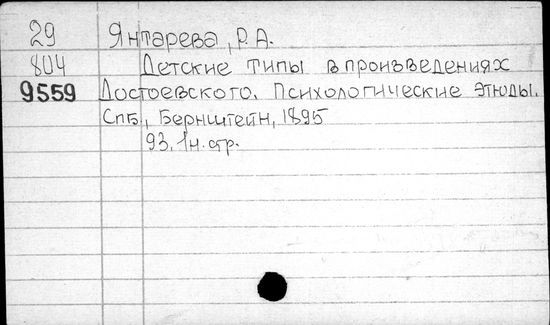 29 Янтарева, Р.А.
804 Детские типы в произведениях
9559 Достоевского. Психологические этюды.
СПб., Бернштейн, 1895
93, 1н. стр.